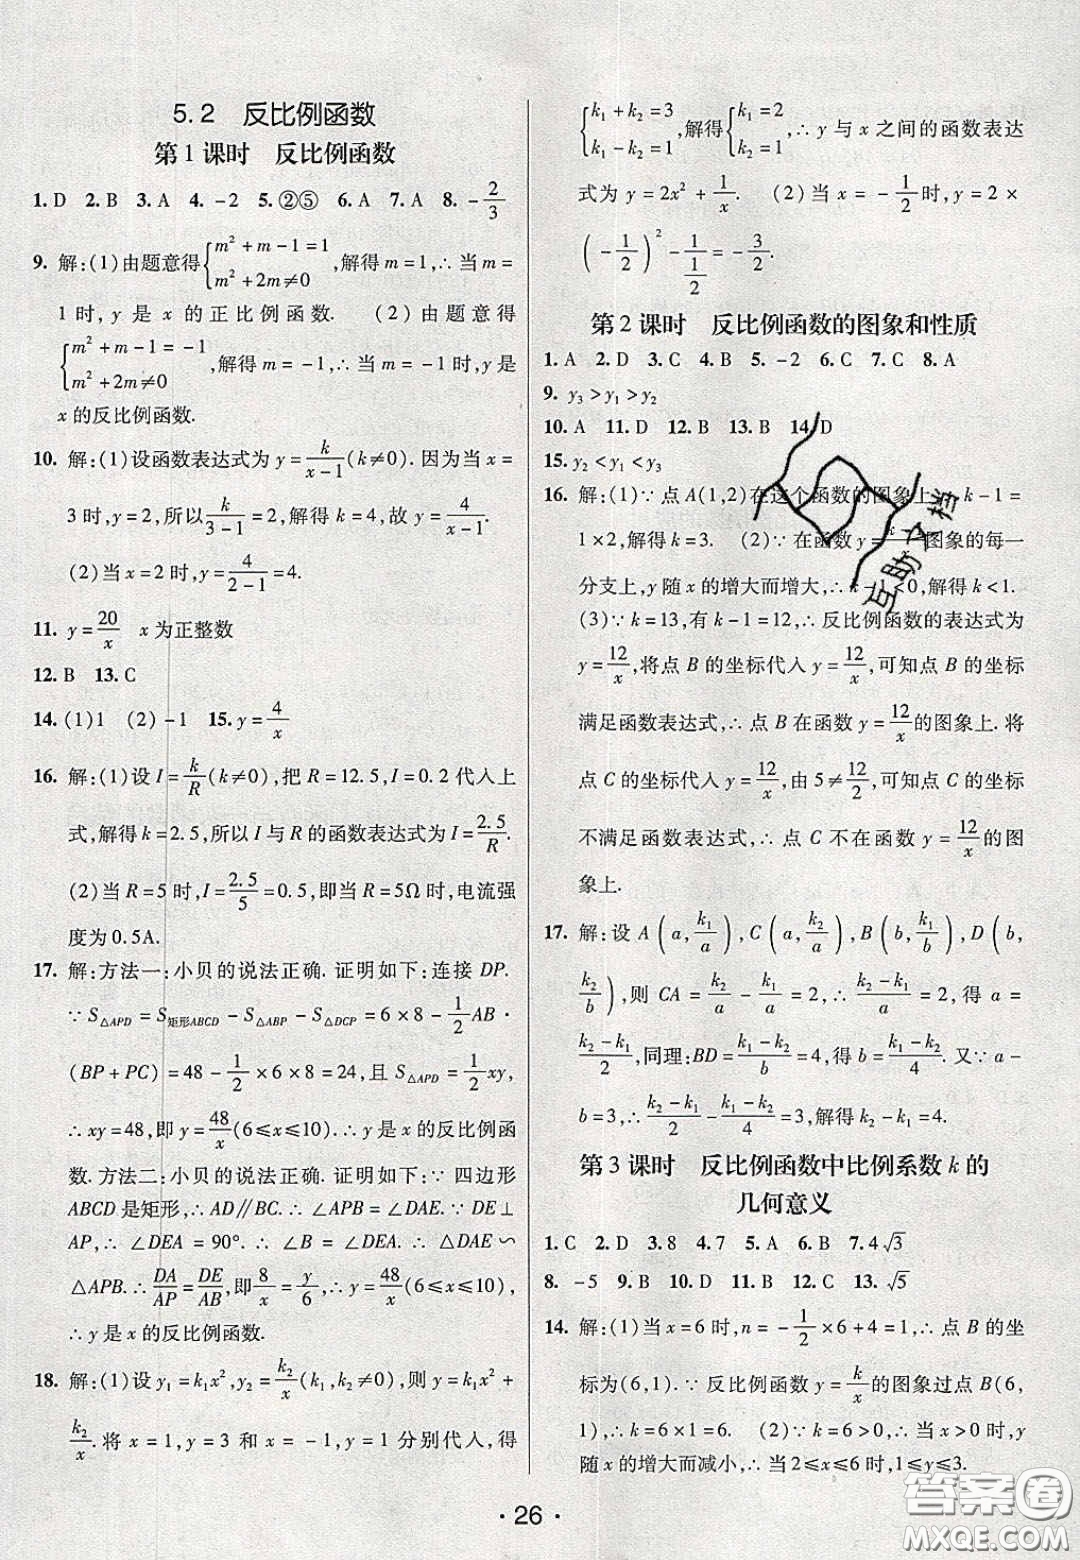 5.2 反比例函数
第1课时 反比例函数
1. D 2. B 3. A 4. -2 5. ②⑤ 6. A 7. A 8. -2/3
9. 解:(1)由题意得{m²+m-1=1, m²+2m≠0, 解得m=1,∴当m=
1时,y是x的正比例函数. (2)由题意得
{m²+m-1=-1, m²+2m≠0, 解得m=-1,∴当m=-1时,y是
x的反比例函数.
10. 解:(1)设函数表达式为y=k/(x-1)(k≠0). 因为当x=
3时,y=2,所以k/(3-1)=2,解得k=4,故y=4/(x-1).
(2)当x=2时,y=4/(2-1)=4.
11. y=20/x x为正整数
12. B 13. C
14. (1)1 (2)-1 15. y=4/x
16. 解:(1)设I=k/R(k≠0),把R=12.5,I=0.2代入上
式,解得k=2.5,所以I与R的函数表达式为I=2.5/R.
(2)当R=5时,I=2.5/5=0.5,即当R=5Ω时,电流强
度为0.5A.
17. 解:方法一:小贝的说法正确. 证明如下:连接DP.
∵S△APD=S矩形ABCD-S△ABP-S△DCP=6×8-1/2AB·
(BP+PC)=48-1/2×6×8=24,且S△APD=1/2xy,
∴xy=48,即y=48/x(6≤x≤10).∴y是x的反比例函
数. 方法二:小贝的说法正确. 证明如下:∵四边形
ABCD是矩形,∴AD∥BC.∴∠APB=∠DAE.∵DE⊥
AP,∴∠DEA=90°.∴∠B=∠DEA.∴△DAE∽
△APB.∴DA/AP=DE/AB,即8/x=y/6,∴y=48/x(6≤x≤10),
∴y是x的反比例函数.
18. 解:(1)设y₁=k₁x²,y₂=k₂/x(k₁,k₂≠0),则y=k₁x²+
k₂/x.将x=1,y=3和x=-1,y=1分别代入,得
{k₁+k₂=3, k₁-k₂=1, 解得{k₁=2, k₂=1,∴y与x之间的函数表达
式为y=2x²+1/x. (2)当x=-1/2时,y=2×
(-1/2)²-1/(1/2)=-3/2.
第2课时 反比例函数的图象和性质
1. A 2. D 3. C 4. B 5. -2 6. C 7. C 8. A
9. y₃>y₁>y₂
10. A 11. D 12. B 13. B 14. D
15. y₂<y₁<y₃
16. 解:(1)∵点A(1,2)在这个函数的图象上,∴k-1=
1×2,解得k=3. (2)∵在函数y=(k-1)/x图象的每一
分支上,y随x的增大而增大,∴k-1<0,解得k<1.
(3)∵k=13,有k-1=12,∴反比例函数的表达式为
y=12/x,将点B的坐标代入y=12/x,可知点B的坐标
满足函数表达式,∴点B在函数y=12/x的图象上. 将
点C的坐标代入y=12/x,由5≠12/2,可知点C的坐标
不满足函数表达式,∴点C不在函数y=12/x的图
象上.
17. 解:设A(a,k₁/a),C(a,k₂/a),B(b,k₁/b),D(b,
k₂/b),则CA=k₂/a-k₁/a=2,∴(k₂-k₁)/a=2,得a=
(k₂-k₁)/2,同理:BD=(k₁-k₂)/b=4,得b=(k₁-k₂)/4. 又∵a-
b=3,∴(k₂-k₁)/2-(k₁-k₂)/4=3,解得k₂-k₁=4.
第3课时 反比例函数中比例系数k的
几何意义
1. C 2. D 3. 8 4. 7 5. A 6. B 7. 4√3
8. -5 9. B 10. D 11. B 12. C 13. √5
14. 解:(1)当x=6时,n=-1/2×6+4=1,∴点B的坐
标为(6,1).∵反比例函数y=k/x的图象过点B(6,
1),∴k=6×1=6. (2)∵k=6>0,∴当x>0时,y
随x的增大而减小,∴当2≤x≤6时,1≤y≤3.
·26·
互助文档
答案圈
MXQE.COM